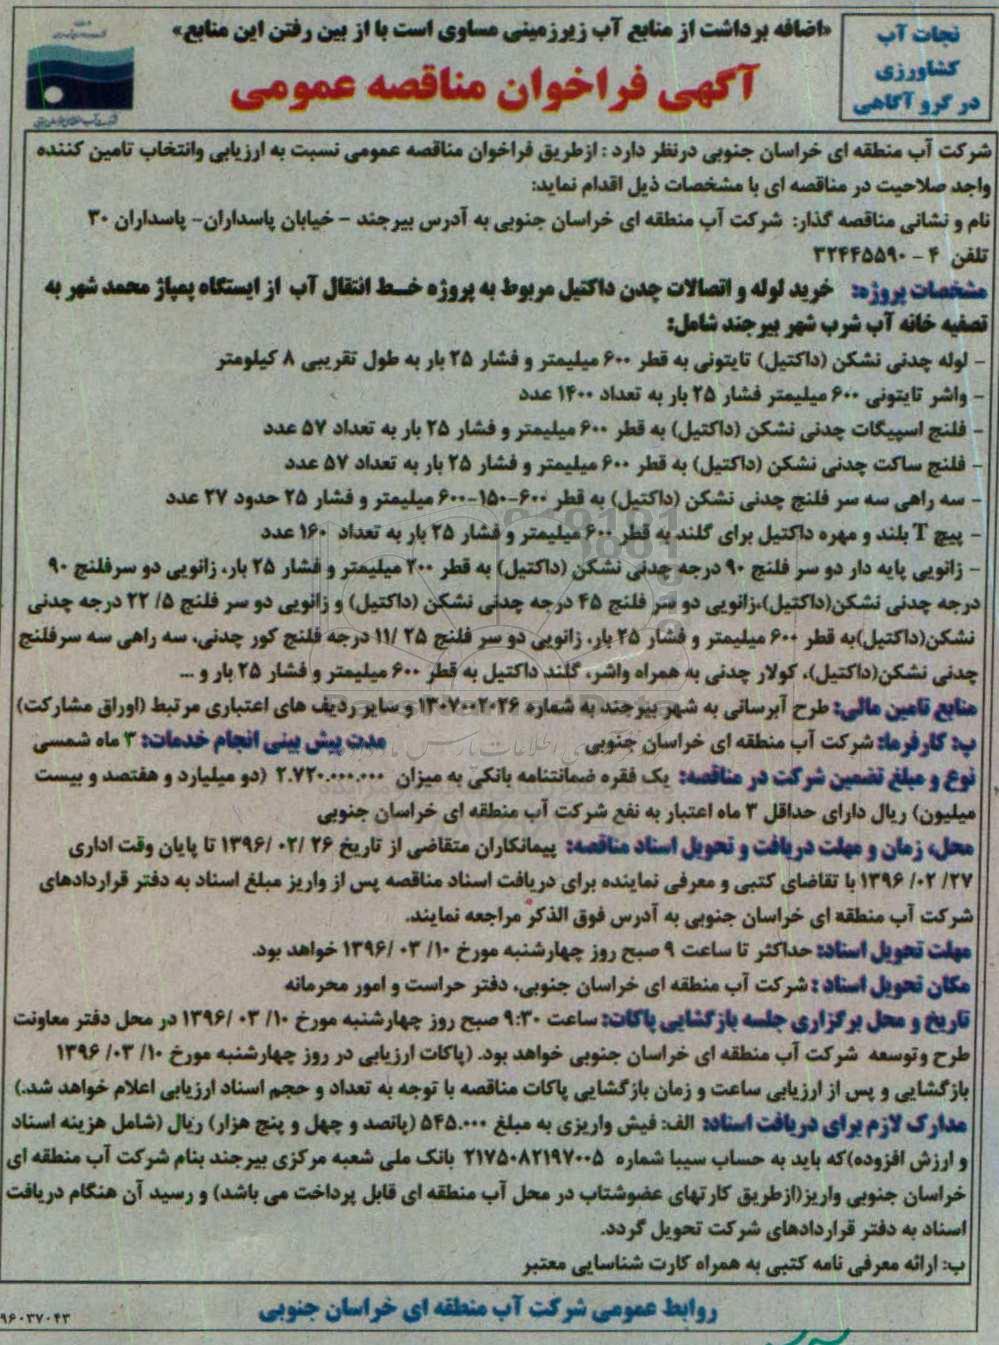 نجات آب
کشاورزی
در گرو آگاهی
«اضافه برداشت از منابع آب زیرزمینی مساوی است با از بین رفتن این منابع»
آگهی فراخوان مناقصه عمومی
شرکت آب منطقه ای خراسان جنوبی درنظر دارد : ازطریق فراخوان مناقصه عمومی نسبت به ارزیابی وانتخاب تامین کننده
واجد صلاحیت در مناقصه ای با مشخصات ذیل اقدام نماید:
نام و نشانی مناقصه گذار: شرکت آب منطقه ای خراسان جنوبی به آدرس بیرجند - خیابان پاسداران- پاسداران ۳۰
تلفن ۴ - ۳۲۴۴۵۵۹۰
مشخصات پروژه: خرید لوله و اتصالات چدن داکتیل مربوط به پروژه خط انتقال آب از ایستگاه پمپاژ محمد شهر به
تصفیه خانه آب شرب شهر بیرجند شامل:
- لوله چدنی نشکن (داکتیل) تایتونی به قطر ۶۰۰ میلیمتر و فشار ۲۵ بار به طول تقریبی ۸ کیلومتر
- واشر تایتونی ۶۰۰ میلیمتر فشار ۲۵ بار به تعداد ۱۴۰۰ عدد
- فلنج اسپیگات چدنی نشکن (داکتیل) به قطر ۶۰۰ میلیمتر و فشار ۲۵ بار به تعداد ۵۷ عدد
- فلنج ساکت چدنی نشکن (داکتیل) به قطر ۶۰۰ میلیمتر و فشار ۲۵ بار به تعداد ۵۷ عدد
- سه راهی سه سر فلنج چدنی نشکن (داکتیل) به قطر ۶۰۰-۱۵۰-۶۰۰ میلیمتر و فشار ۲۵ حدود ۲۷ عدد
- پیچ T بلند و مهره داکتیل برای گلند به قطر ۶۰۰ میلیمتر و فشار ۲۵ بار به تعداد ۱۶۰ عدد
- زانویی پایه دار دو سر فلنج ۹۰ درجه چدنی نشکن (داکتیل) به قطر ۲۰۰ میلیمتر و فشار ۲۵ بار، زانویی دو سرفلنج ۹۰
درجه چدنی نشکن(داکتیل)،زانویی دو سر فلنج ۴۵ درجه چدنی نشکن (داکتیل) و زانویی دو سر فلنج ۵/ ۲۲ درجه چدنی
نشکن(داکتیل)به قطر ۶۰۰ میلیمتر و فشار ۲۵ بار، زانویی دو سر فلنج ۲۵ /۱۱ درجه فلنج کور چدنی، سه راهی سه سرفلنج
چدنی نشکن(داکتیل)، کولار چدنی به همراه واشر، گلند داکتیل به قطر ۶۰۰ میلیمتر و فشار ۲۵ بار و ...
منابع تامین مالی: طرح آبرسانی به شهر بیرجند به شماره ۱۳۰۷۰۰۲۰۲۶ و سایر ردیف های اعتباری مرتبط (اوراق مشارکت)
پ: کارفرما: شرکت آب منطقه ای خراسان جنوبی مدت پیش بینی انجام خدمات: ۳ ماه شمسی
نوع و مبلغ تضمین شرکت در مناقصه: یک فقره ضمانتنامه بانکی به میزان ۲.۷۲۰.۰۰۰.۰۰۰ (دو میلیارد و هفتصد و بیست
میلیون) ریال دارای حداقل ۳ ماه اعتبار به نفع شرکت آب منطقه ای خراسان جنوبی
محل، زمان و مهلت دریافت و تحویل اسناد مناقصه: پیمانکاران متقاضی از تاریخ ۲۶ /۰۲ /۱۳۹۶ تا پایان وقت اداری
۲۷/ ۰۲/ ۱۳۹۶ با تقاضای کتبی و معرفی نماینده برای دریافت اسناد مناقصه پس از واریز مبلغ اسناد به دفتر قراردادهای
شرکت آب منطقه ای خراسان جنوبی به آدرس فوق الذکر مراجعه نمایند.
مهلت تحویل اسناد: حداکثر تا ساعت ۹ صبح روز چهارشنبه مورخ ۱۰/ ۰۳ /۱۳۹۶ خواهد بود.
مکان تحویل اسناد : شرکت آب منطقه ای خراسان جنوبی، دفتر حراست و امور محرمانه
تاریخ و محل برگزاری جلسه بازگشایی پاکات: ساعت ۹:۳۰ صبح روز چهارشنبه مورخ ۱۰/ ۰۳ /۱۳۹۶ در محل دفتر معاونت
طرح وتوسعه شرکت آب منطقه ای خراسان جنوبی خواهد بود. (پاکات ارزیابی در روز چهارشنبه مورخ ۱۰/ ۰۳/ ۱۳۹۶
بازگشایی و پس از ارزیابی ساعت و زمان بازگشایی پاکات مناقصه با توجه به تعداد و حجم اسناد ارزیابی اعلام خواهد شد.)
مدارک لازم برای دریافت اسناد: الف: فیش واریزی به مبلغ ۵۴۵.۰۰۰ (پانصد و چهل و پنج هزار) ریال (شامل هزینه اسناد
و ارزش افزوده)که باید به حساب سیبا شماره ۲۱۷۵۰۸۲۱۹۷۰۰۵ بانک ملی شعبه مرکزی بیرجند بنام شرکت آب منطقه ای
خراسان جنوبی واریز(ازطریق کارتهای عضوشتاب در محل آب منطقه ای قابل پرداخت می باشد) و رسید آن هنگام دریافت
اسناد به دفتر قراردادهای شرکت تحویل گردد.
ب: ارائه معرفی نامه کتبی به همراه کارت شناسایی معتبر
روابط عمومی شرکت آب منطقه ای خراسان جنوبی
۹۶۰۳۷۰۴۳